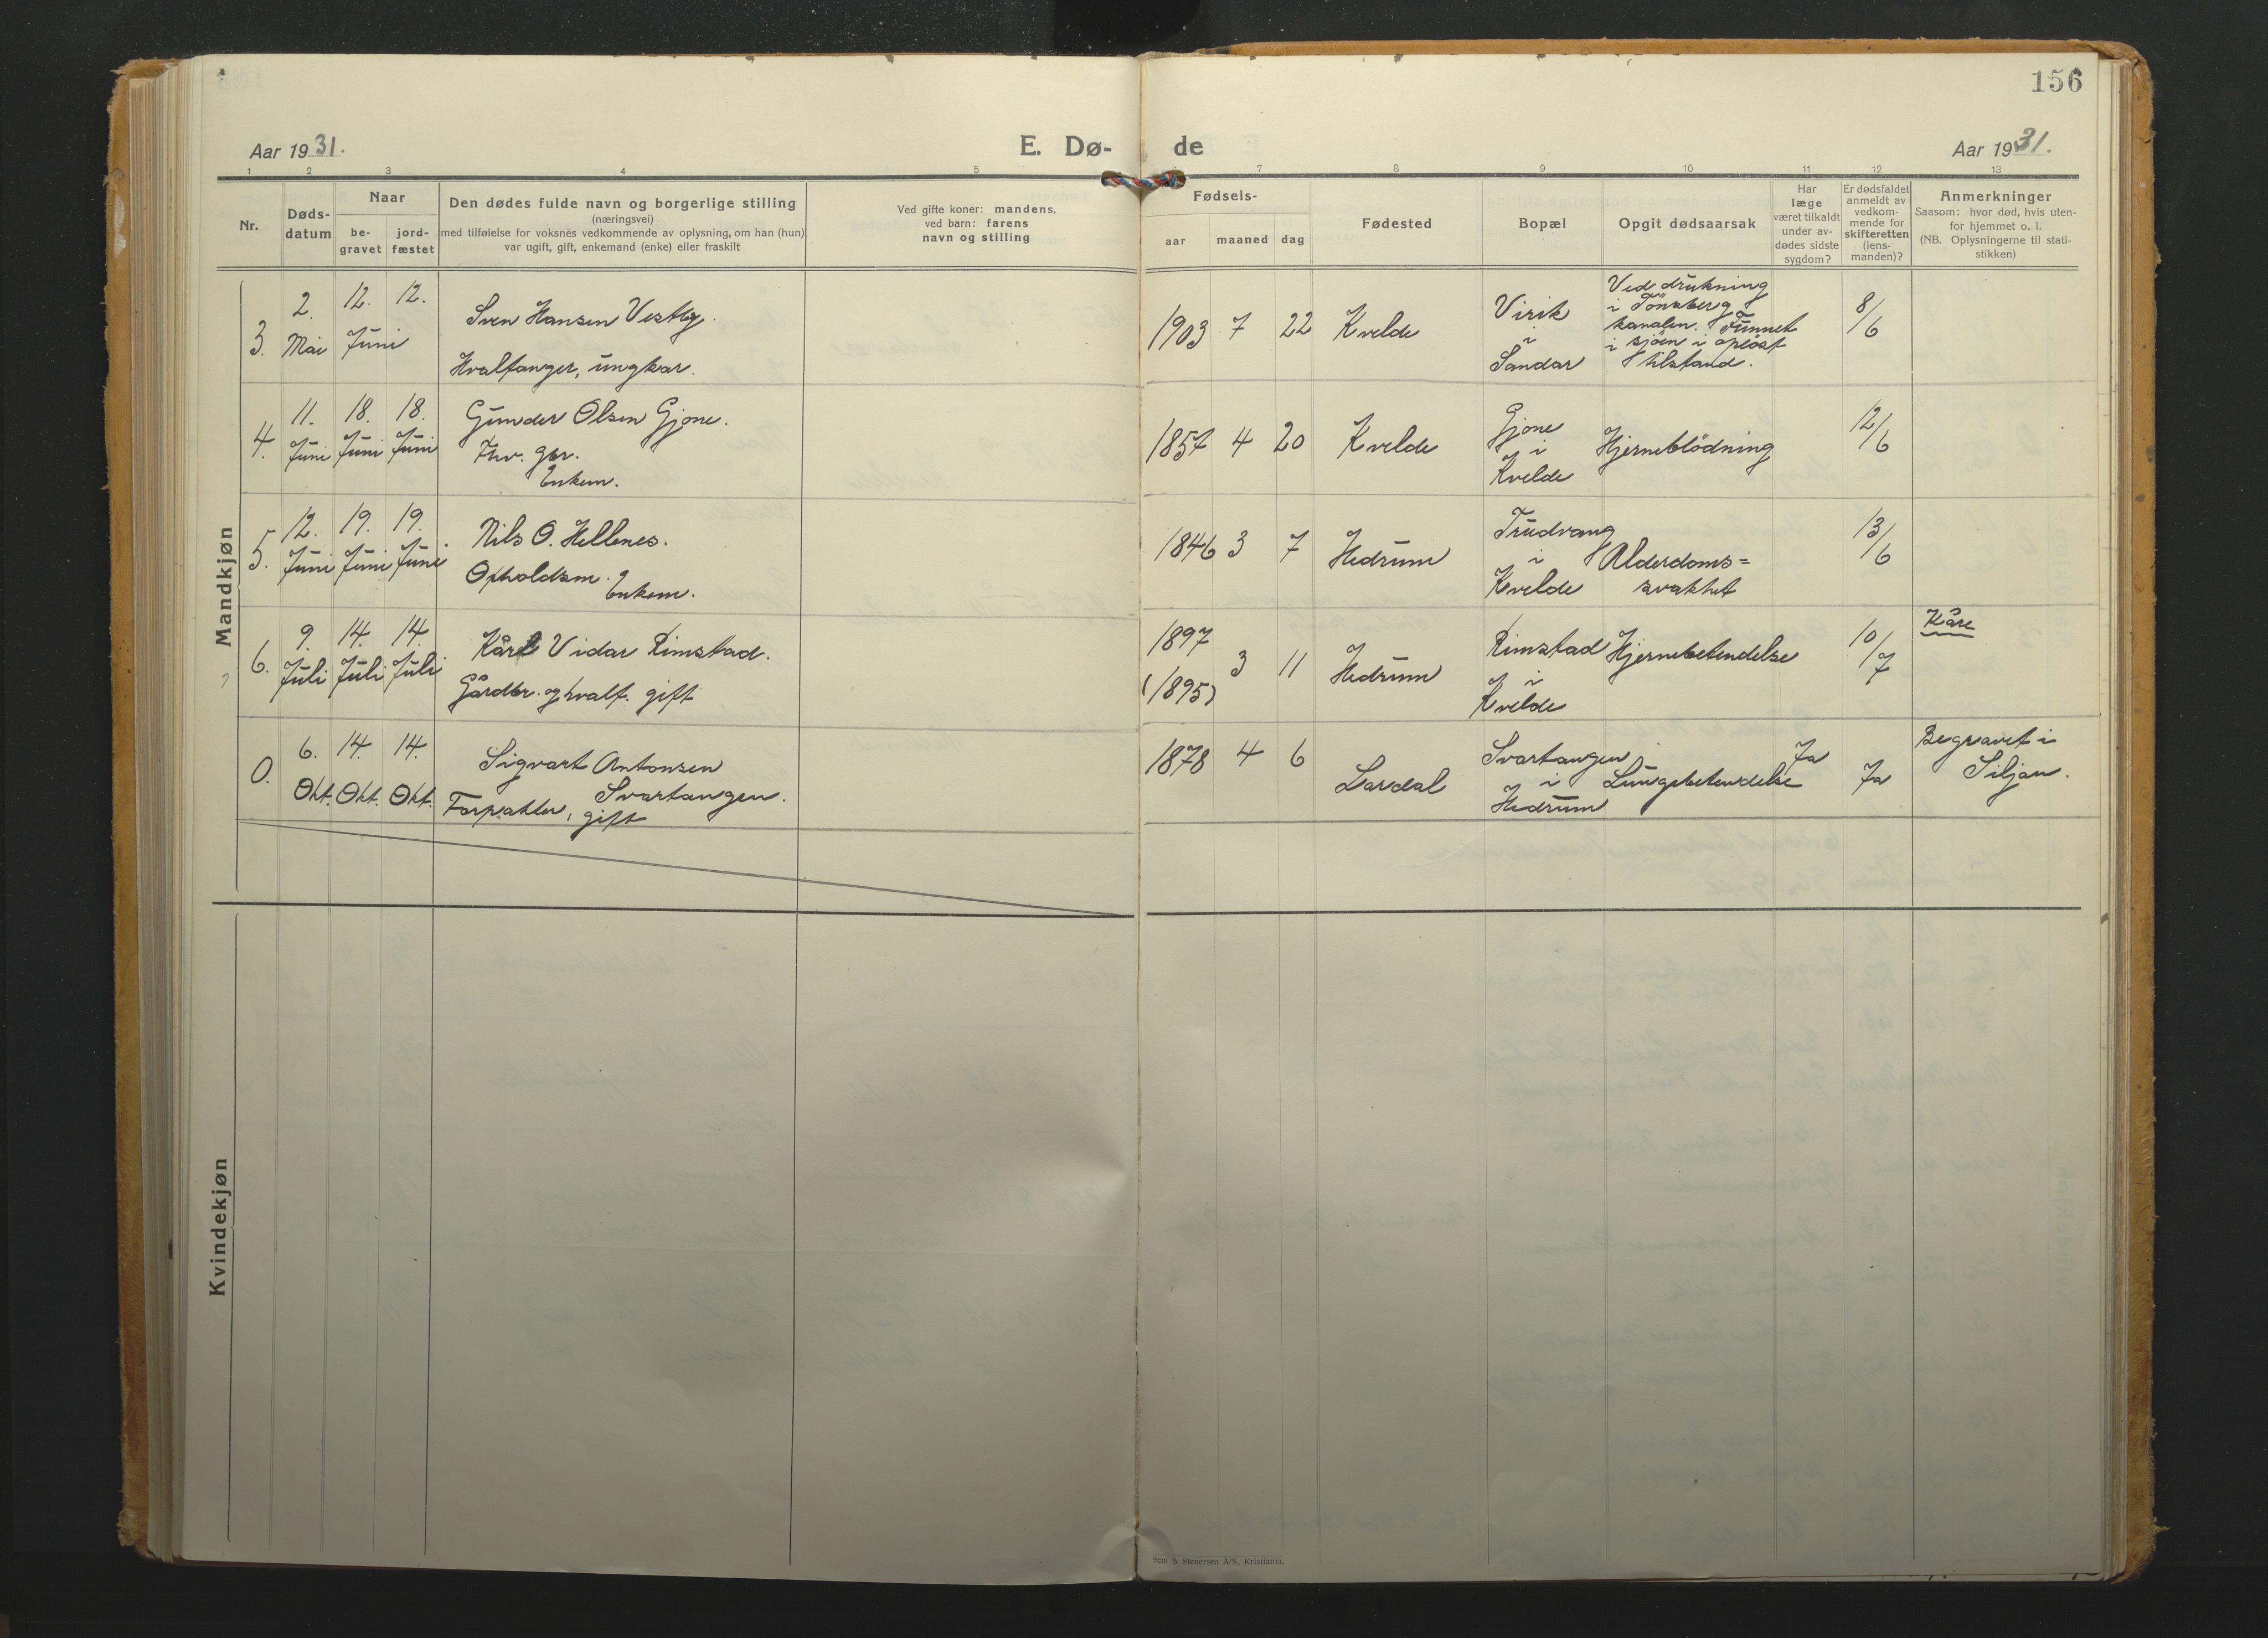 156
Aar 1931.
E. Dø-
de
Aar 1931.
1 2 3 4 5 7 8 9 10 11 12 13
Nr.
Døds-
datum
Naar
be-
gravet
jord-
fæstet
Den dødes fulde navn og borgerlige stilling
(næringsvei)
med tilføielse for voksnes vedkommende av oplysning, om han (hun)
var ugift, gift, enkemand (enke) eller fraskilt
Ved gifte koner: mandens,
ved barn: farens
navn og stilling
Fødsels-
aar
maaned
dag
Fødested
Bopæl
Opgit dødsaarsak
Har
læge
været tilkaldt
under av-
dødes sidste
sygdom?
Er dødsfaldet
anmeldt av
vedkom-
mende for
skifteretten
(lens-
manden)?
Anmerkninger
Saasom: hvor død, hvis uten-
for hjemmet o. l.
(NB. Oplysningerne til stati-
stikken)
Mandkjøn
3.
2.
Mai
12.
12.
Juni
Sven Hansen Vestby.
Hvalfanger, ungkar.
1903 7 22 Kvelde
Virik
i
Sandar
Ved drukning
i Tönsberg
kanalen. Funnet
i sjöen i oplöst
tilstand.
8/6
4.
11.
Juni
18.
Juni
18.
Juni
Gunder Olsen Gjone.
Fhv. gbr.
Enkem.
1857 4 20 Kvelde
Gjone
i
Kvelde
Hjerneblödning
12/6
5.
12.
Juni
19.
Juni
19.
Juni
Nils O. Hellenes.
Opholdsm. Enkem.
1846 3 7 Hedrum
Trudvang
i
Kvelde
Alderdoms=
svakhet
13/6
6.
9.
Juli
14.
Juli
14.
Juli
Kåre Vidar Rimstad.
Gårdbr. og hvalf. gift
1897
(1895)
3 11 Hedrum
Rimstad
i
Kvelde
Hjernebetendelse
10/7
Kåre
0.
6.
Okt.
14.
Okt.
14.
Okt.
Sigvart Antonsen
Svartangen.
Forpakter, gift
1878 4 6 Lardal
Svartangen
i
Hedrum
Lungebetendelse
Ja
Ja
Begravet i
Siljan.
Kvindekjøn
Sem & Stenersen A/S, Kristiania.